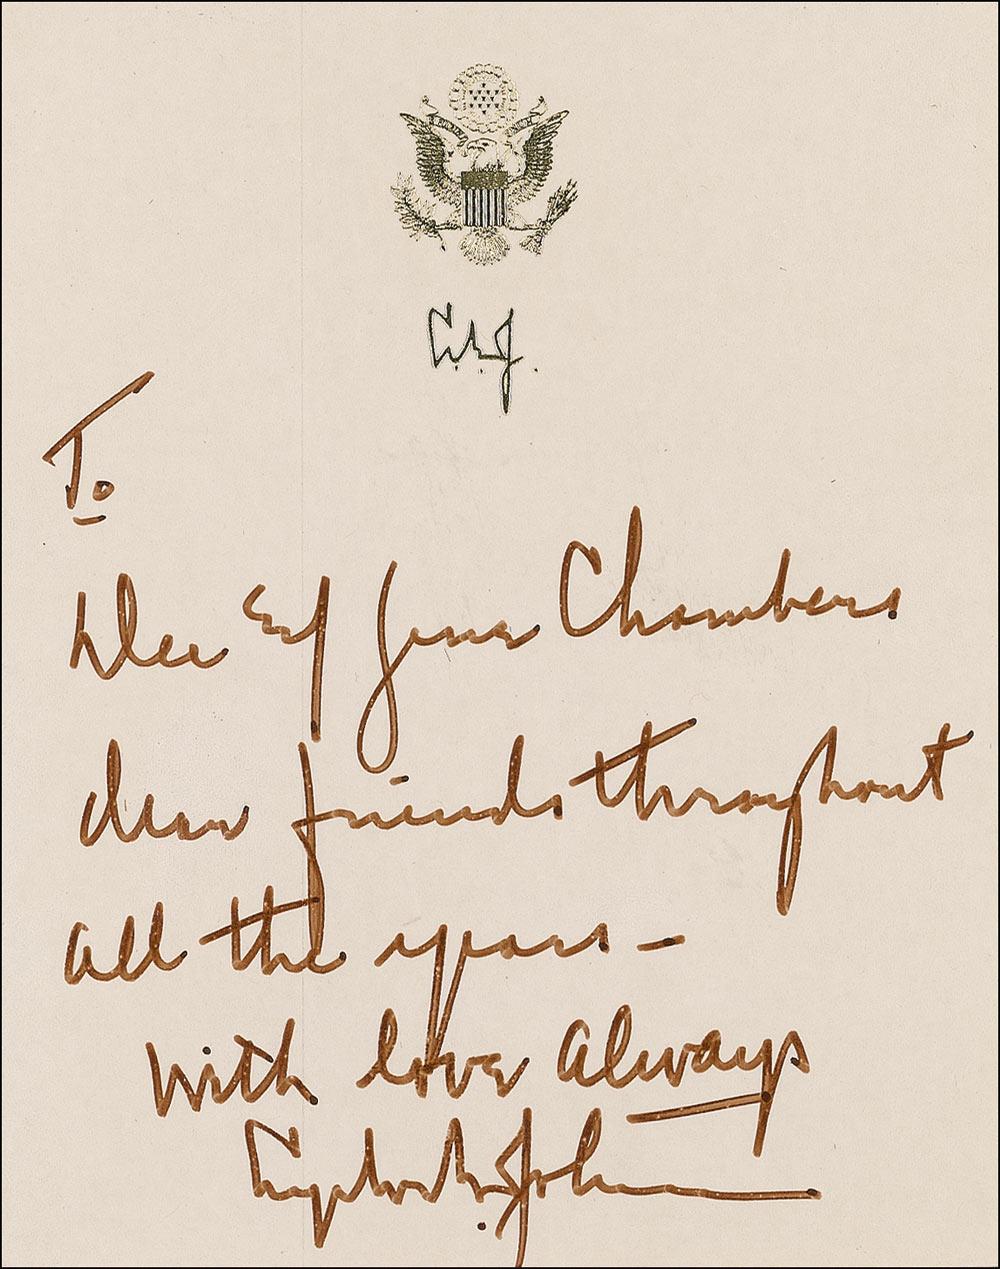 LBJ
To
Dee Chambers
dear friends throughout
all the years -
with love always
Lyndon B. Johnson